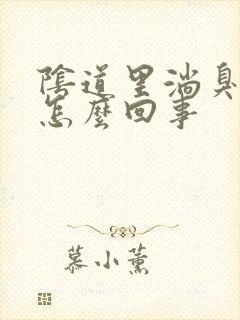 陰道里淌臭
怎麼回事
慕小薰